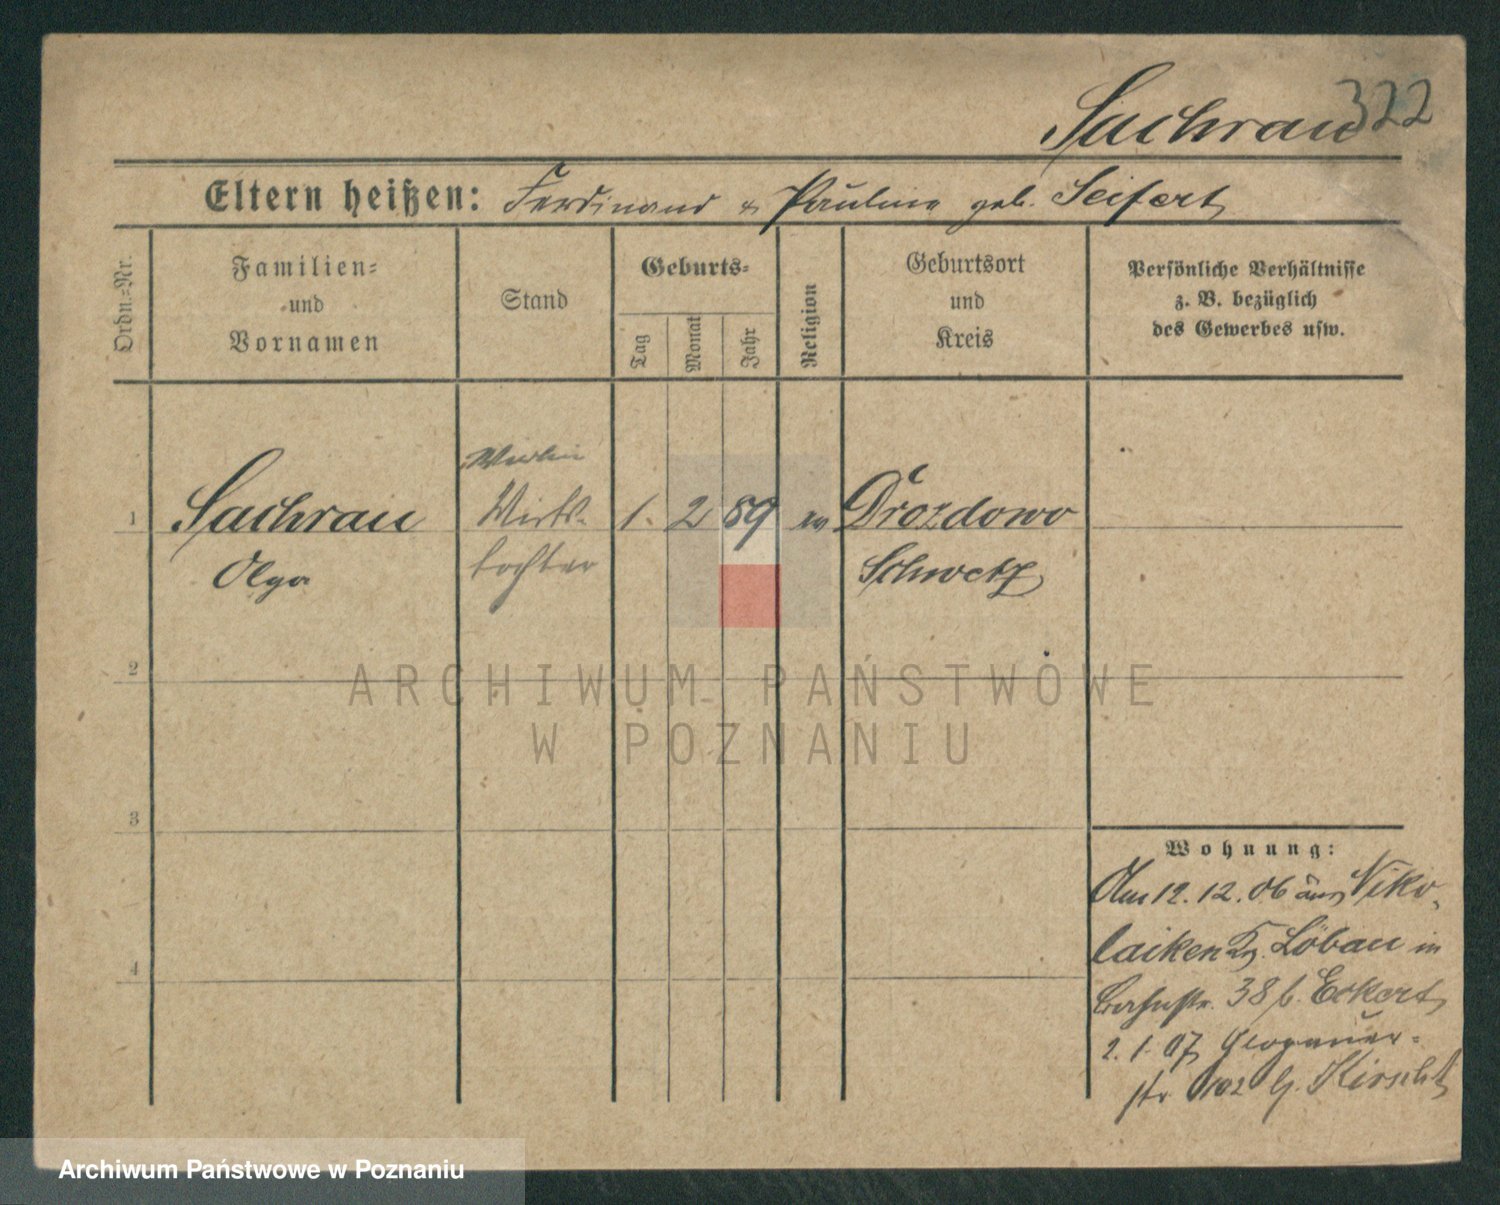 322
Sachrau
Eltern heißen: Ferdinand & Pauline geb. Seifert
Ordn.-Nr.
Familien-
und
Vornamen
Stand
Geburts-
Tag
Monat
Jahr
Religion
Geburtsort
und
Kreis
Persönliche Verhältnisse
z. B. bezüglich
des Gewerbes usw.
1 Sachrau Wirts- 1. 2 89 ev Drozdowo
Olga tochter Schwetz
2
3
4
Wohnung:
Am 12. 12. 06 aus Niko-
laiken Kr. Löbau in
38 b. Eckert
2. 1. 07 Glogauer-
str 102 b. Hirscht
ARCHIWUM PAŃSTWOWE
W POZNANIU
Archiwum Państwowe w Poznaniu